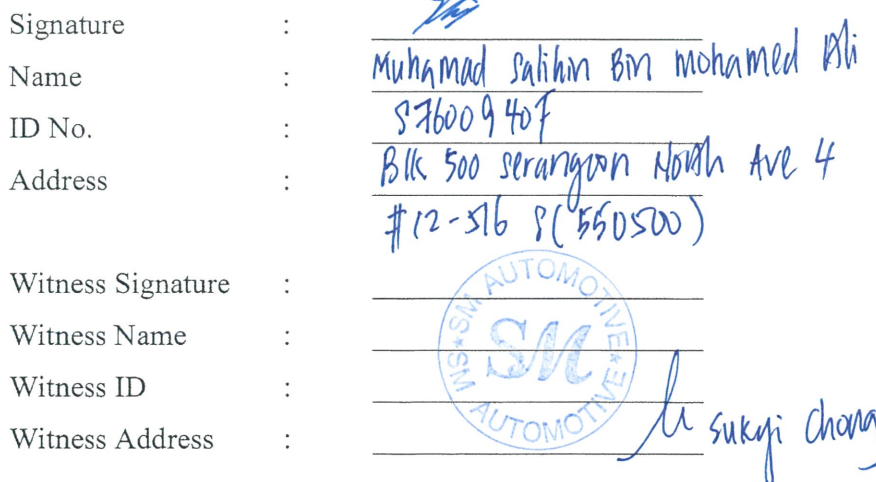 Signature :
Name : Muhamad Salihin Bin Mohamed Ali
ID No. : S7600940F
Address : Blk 500 Serangoon North Ave 4
#12-516 S(550500)
Witness Signature :
Witness Name :
Witness ID :
Witness Address :
SM AUTOMOTIVE
SM
SM AUTOMOTIVE
Sukyi Chong